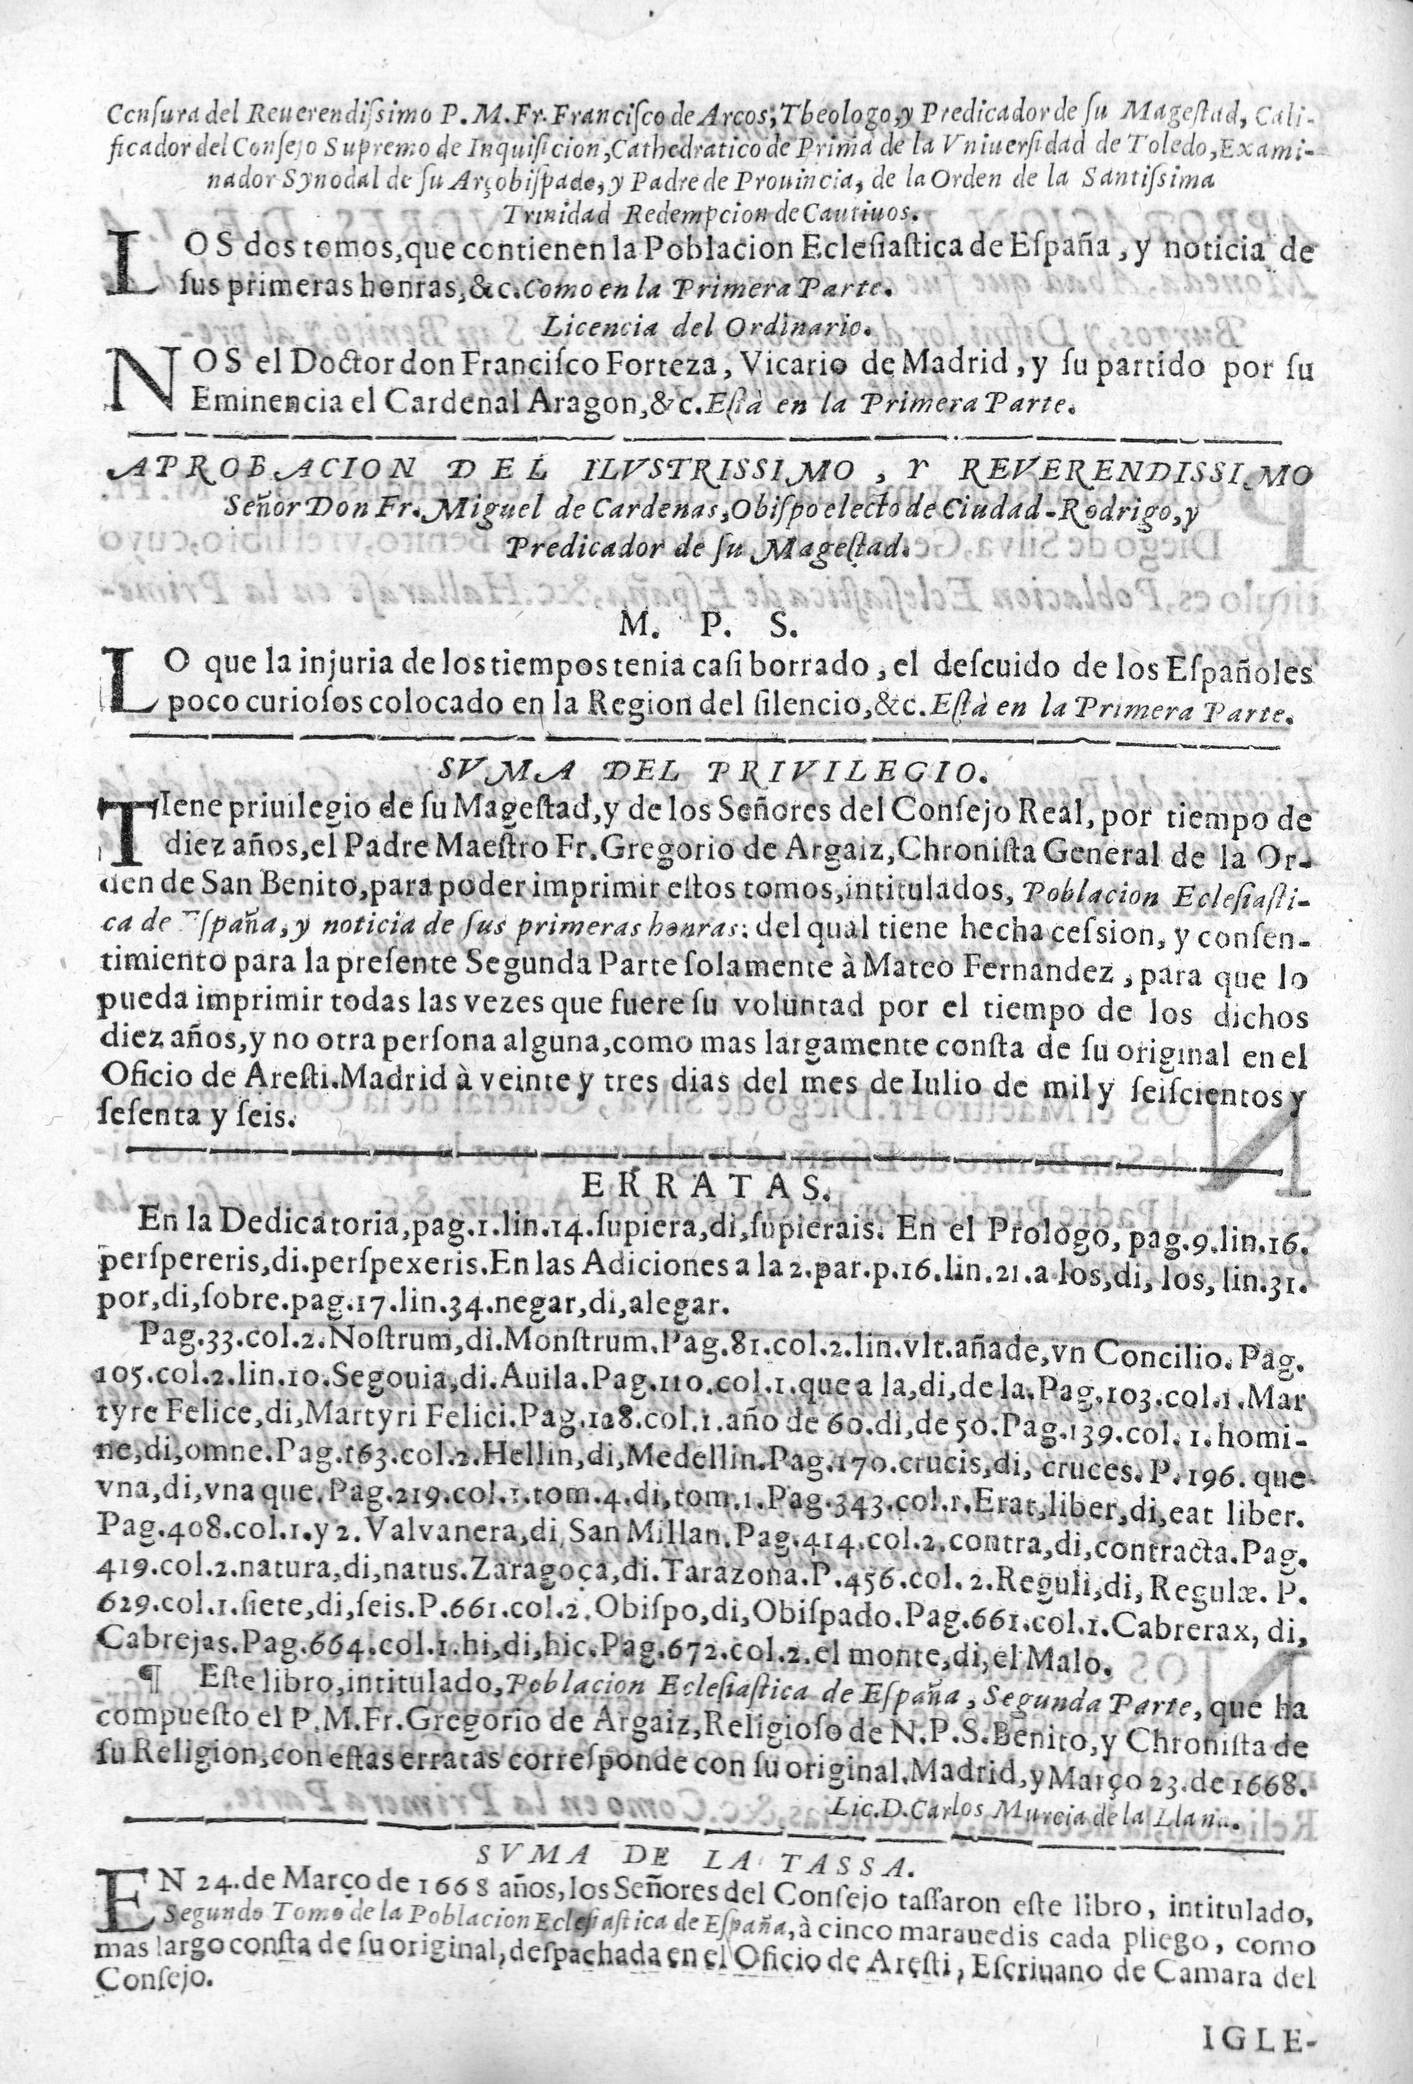 Censura del Reuerendiſsimo P. M. Fr. Franciſco de Arcos, Theologo, y Predicador de ſu Mageſtad, Cali-
ficador del Conſejo Supremo de Inquiſicion, Cathedratico de Prima de la Vniuerſidad de Toledo, Exami-
nador Synodal de ſu Arçobiſpado, y Padre de Prouincia, de la Orden de la Santiſsima
Trinidad Redempcion de Cautiuos.
LOS dos tomos, que contienen la Poblacion Ecleſiaſtica de Eſpaña, y noticia de
ſus primeras honras, &c. Como en la Primera Parte.
Licencia del Ordinario.
NOS el Doctor don Franciſco Forteza, Vicario de Madrid, y ſu partido por ſu
Eminencia el Cardenal Aragon, &c. Eſtà en la Primera Parte.
APROBACION DEL ILVSTRISSIMO, Y REVERENDISSIMO
Señor Don Fr. Miguel de Cardenas, Obiſpo electo de Ciudad-Rodrigo, y
Predicador de ſu Mageſtad.
M. P. S.
LO que la injuria de los tiempos tenia caſi borrado, el deſcuido de los Eſpañoles
poco curioſos colocado en la Region del ſilencio, &c. Eſtà en la Primera Parte.
SVMA DEL PRIVILEGIO.
TIene priuilegio de ſu Mageſtad, y de los Señores del Conſejo Real, por tiempo de
diez años, el Padre Maeſtro Fr. Gregorio de Argaiz, Chroniſta General de la Or-
den de San Benito, para poder imprimir eſtos tomos, intitulados, Poblacion Ecleſiaſti-
ca de Eſpaña, y noticia de ſus primeras honras: del qual tiene hecha ceſsion, y conſen-
timiento para la preſente Segunda Parte ſolamente à Mateo Fernandez, para que lo
pueda imprimir todas las vezes que fuere ſu voluntad por el tiempo de los dichos
diez años, y no otra perſona alguna, como mas largamente conſta de ſu original en el
Oficio de Areſti. Madrid à veinte y tres dias del mes de Iulio de mil y ſeiſcientos y
ſeſenta y ſeis.
ERRATAS.
En la Dedicatoria, pag. 1. lin. 14. ſupiera, di, ſupierais. En el Prologo, pag. 9. lin. 16.
perſpereris, di. perſpexeris. En las Adiciones a la 2. par. p. 16. lin. 21. a los, di, los, lin. 31.
por, di, ſobre. pag. 17. lin. 34. negar, di, alegar.
Pag. 33. col. 2. Noſtrum, di. Monſtrum. Pag. 81. col. 2. lin. vlt. añade, vn Concilio. Pag.
105. col. 2. lin. 10. Segouia, di. Auila. Pag. 110. col. 1. que a la, di, de la. Pag. 103. col. 1. Mar
tyre Felice, di, Martyri Felici. Pag. 128. col. 1. año de 60. di, de 50. Pag. 139. col. 1. homi-
ne, di, omne. Pag. 163. col. 2. Hellin, di, Medellin. Pag. 170. crucis, di, cruces. P. 196. que
vna, di, vna que. Pag. 219. col. 1. tom. 4. di, tom. 1. Pag. 343. col. 1. Erat, liber, di, eat liber.
Pag. 408. col. 1. y 2. Valvanera, di, San Millan. Pag. 414. col. 2. contra, di, contracta. Pag.
419. col. 2. natura, di, natus. Zaragoça, di. Tarazona. P. 456. col. 2. Reguli, di, Regulæ. P.
629. col. 1. ſiete, di, ſeis. P. 661. col. 2. Obiſpo, di, Obiſpado. Pag. 661. col. 1. Cabrerax, di,
Cabrejas. Pag. 664. col. 1. hi, di, hic. Pag. 672. col. 2. el monte, di, el Malo.
¶ Eſte libro, intitulado, Poblacion Ecleſiaſtica de Eſpaña, Segunda Parte, que ha
compueſto el P. M. Fr. Gregorio de Argaiz, Religioſo de N. P. S. Benito, y Chroniſta de
ſu Religion, con eſtas erratas correſponde con ſu original. Madrid, y Março 23. de 1668.
Lic. D. Carlos Murcia de la Llana.
SVMA DE LA TASSA.
EN 24. de Março de 1668 años, los Señores del Conſejo taſſaron eſte libro, intitulado,
Segundo Tomo de la Poblacion Ecleſiaſtica de Eſpaña, à cinco marauedis cada pliego, como
mas largo conſta de ſu original, deſpachada en el Oficio de Areſti, Eſcriuano de Camara del
Conſejo.
IGLE-